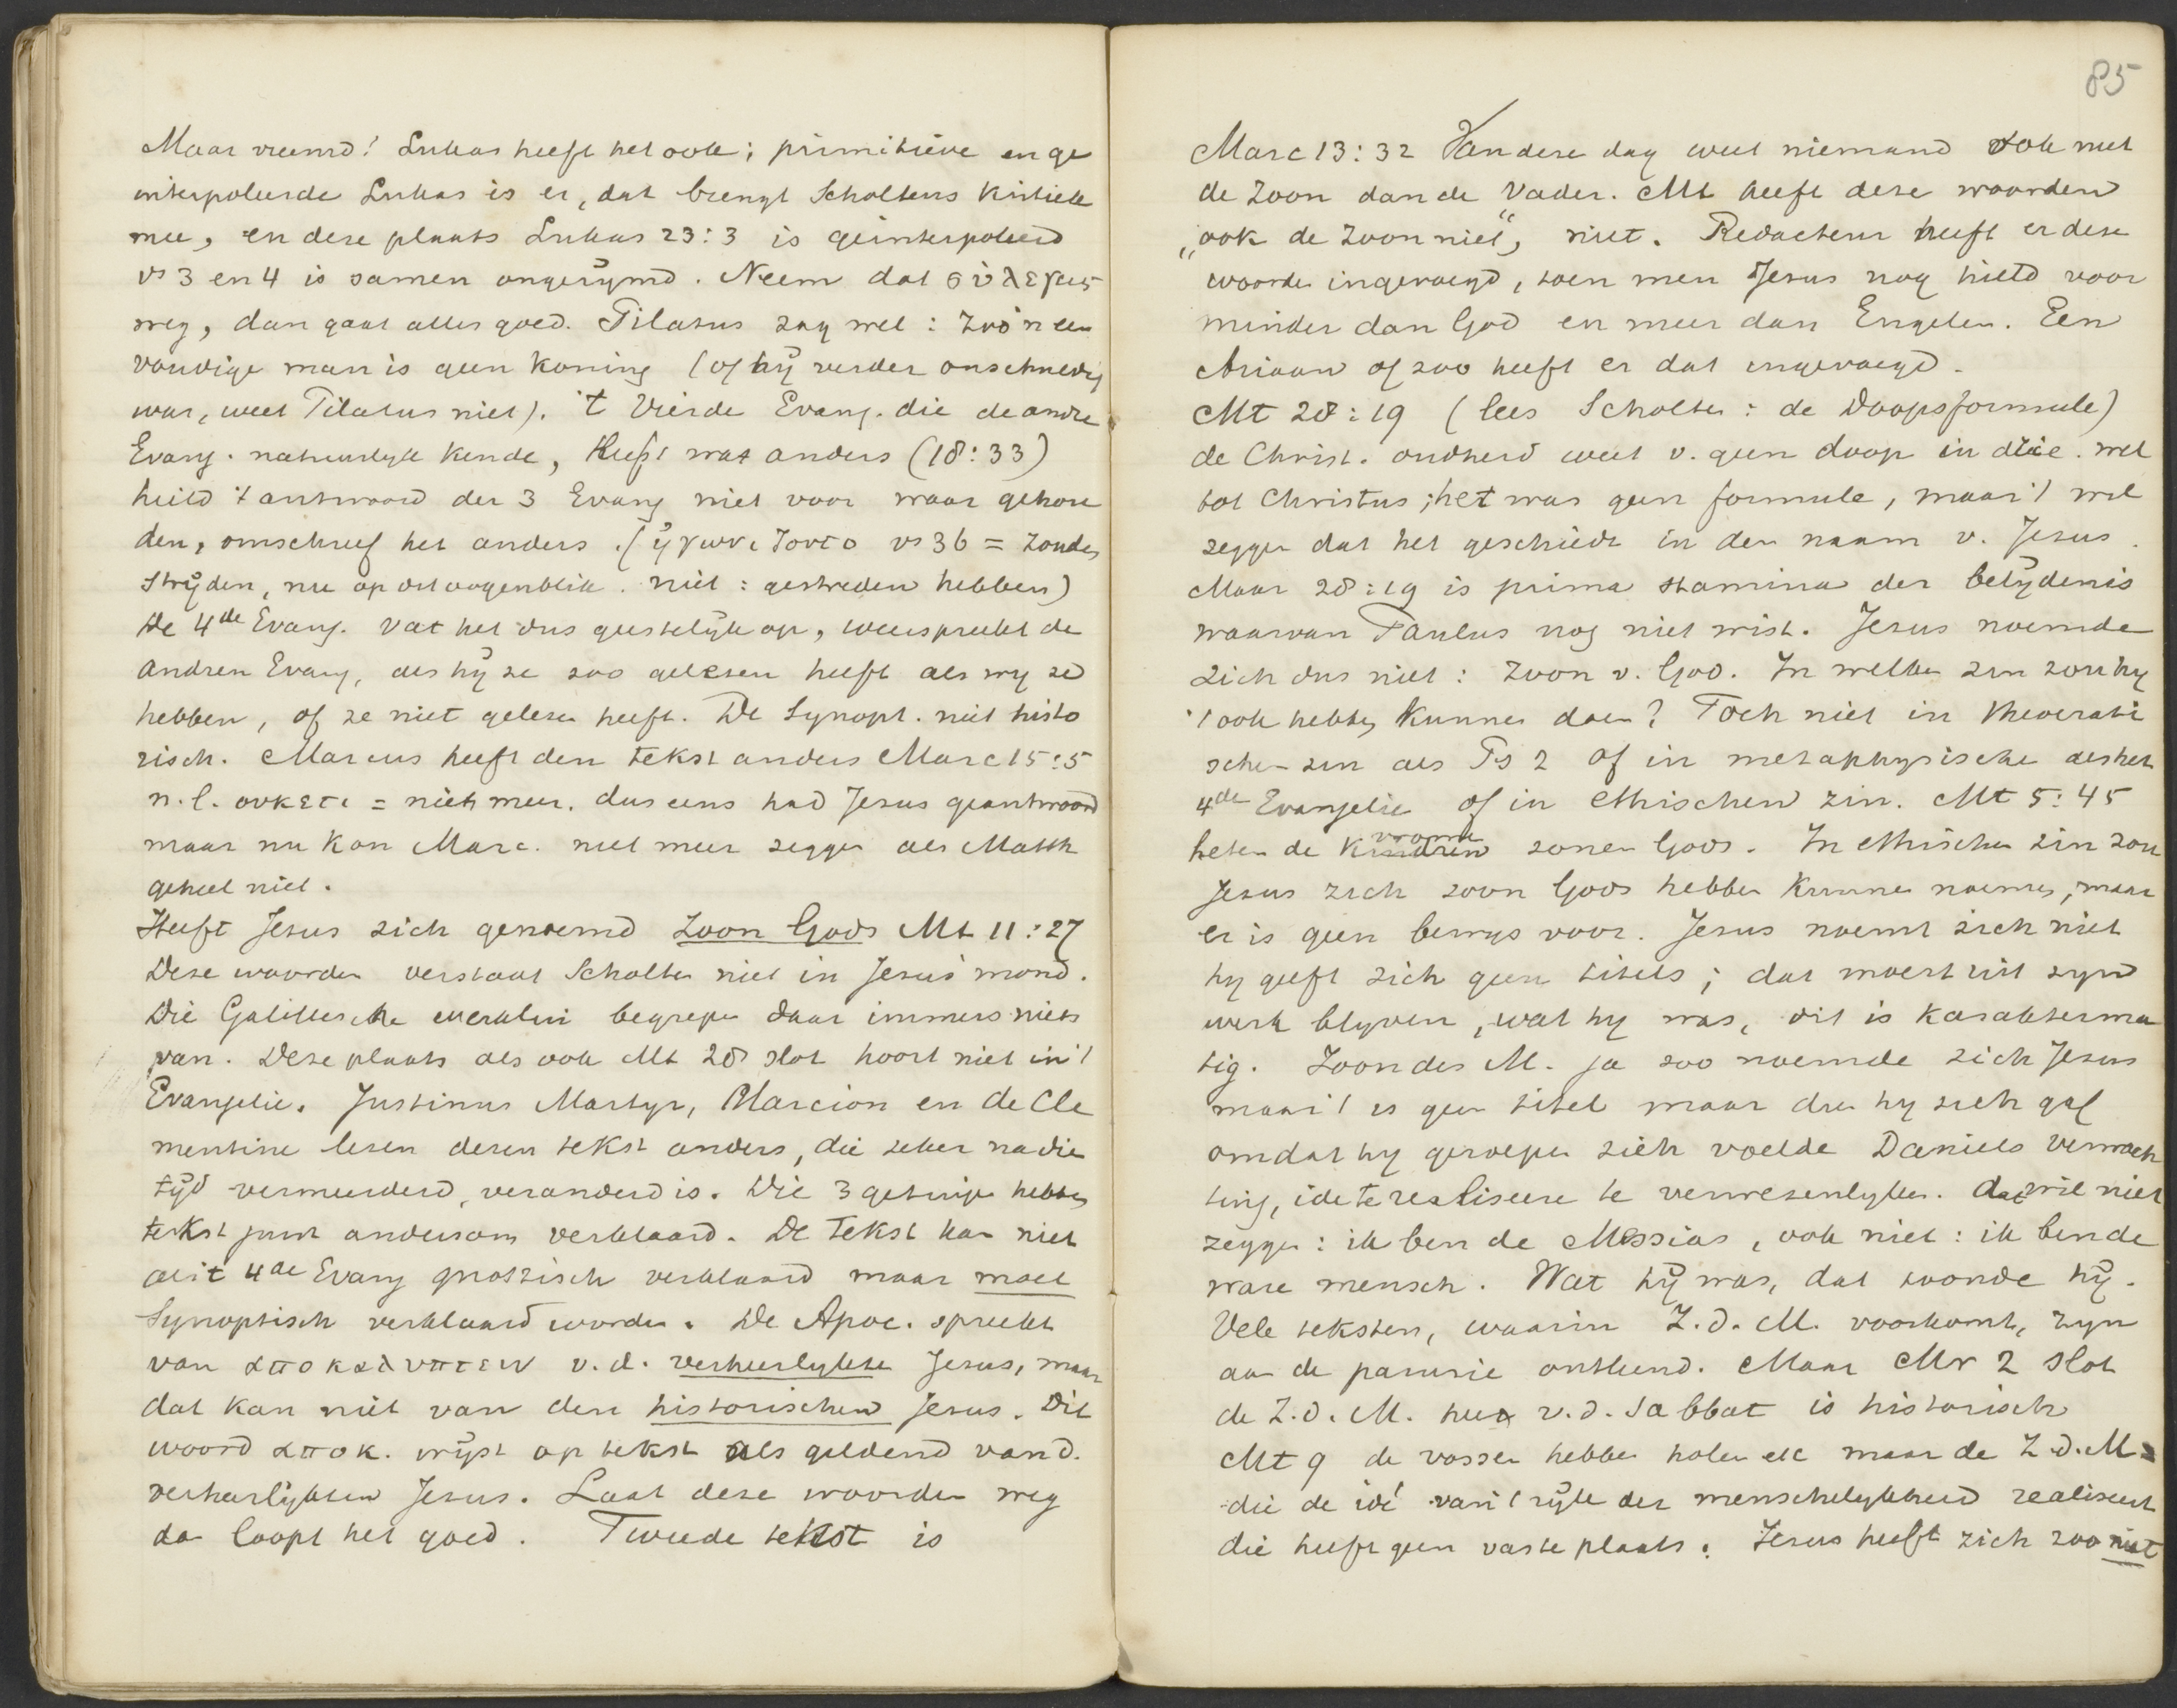 Maar vreemd! Lukas heeft het ook; primitieve en ge
interpoleerde Lukas is er, dat brengt Scholtens kritiek
mee, en deze plaats Lukas 23:3 is geinterpoleerd
vs 3 en 4 is samen ongerijmd. Neem dat σὺ λεγεις
weg, dan gaat alles goed. Pilatus zag wel: Zoo'n een
voudige man is geen koning (of hij verder onschuldig
was, weet Pilatus niet). 't Vierde Evang. die de andre
Evang. natuurlyk kende, heeft wat anders (18:33)
hield 't antwoord der 3 Evang niet voor waar gehou
den, omschreef het anders. (ἠγωνιζοντο vs 36 = zouden
strijden, nu op dit oogenblik. niet: gestreden hebben)
De 4de Evang. vat het dus geestelijk op, weerspreekt de
andren Evang, als hij ze zoo gelezen heeft als wy ze
hebben, of ze niet gelezen heeft. De Synopt. niet histo
risch. Marcus heeft den tekst anders Marc 15:5
n.l. ουκετι = niet meer. dus eens had Jesus geantwoord
maar nu kon Marc. niet meer zeggen als Matth
geheel niet.
Heeft Jesus zich genoemd Zoon Gods Mt 11:27
Deze woorden verstaat Scholten niet in Jesus' mond.
Die Galileesche begrepen daar immers niets
van. Deze plaats als ook Mt 28 slot hoort niet in 't
Evangelie. Justinus Martyr, Marcion en de Cle
mentine lezen dezen tekst anders, die zeker na die
tijd vermeerderd, veranderd is. Die 3 getuigen hebben
tekst juist andersom verklaard. De tekst kan niet
uit 4de Evang gnostisch verklaard maar moet
Synoptisch verklaard worden. De Apoc. spreekt
van αποκαλυπτειν v. d. verheerlykten Jesus, maar
dat kan niet van den historischen Jesus. Dit
woord αποκ. wijst op tekst als geldend van d.
verheerlijkten Jesus. Laat deze woorden weg
dan loopt het goed. Tweede tekst is
85
Marc 13:32 Van deze dag weet niemand ook niet
de Zoon dan de Vader. Mt heeft deze woorden
„ook de Zoon niet“, niet. Redacteur heeft er deze
woorden ingevoegd, toen men Jesus nog hield voor
minder dan God en meer dan Engelen. Een
Ariaan of zoo heeft er dat ingevoegd.
Mt 28:19 (lees Scholten: de Doopsformule)
de Christ. oudheid weet v. geen doop in drie. wel
tot Christus; het was geen formule, maar 't wil
zeggen dat het geschiedt in den naam v. Jesus.
Maar 28:19 is prima stamina der belijdenis
waarvan Paulus nog niet wist. Jesus noemde
zich dus niet: Zoon v. God. In welken zin zou hy
't ook hebben kunnen doen? Toch niet in theocrati
schen zin als Ps 2 of in metaphysische als het
4de Evangelie of in ethischen zin. Mt 5:45
heten de vrome kinderen zonen Gods. In ethischen zin zou
Jesus zich zoon Gods hebben kunnen noemen, maar
er is geen bewys voor. Jesus noemt zich niet
hy geeft zich geen titels; dat moest uit zyn
werk blyken, wat hy was, dit is karakterma
tig. Zoon des M. ja zoo noemde zich Jesus
maar 't is geen titel maar dien hy zich gaf
omdat hy geroepen zich voelde Daniels verwach
ting, idee te realiseeren te verwezenlyken. dat wil niet
zeggen: ik ben de Messias, ook niet: ik ben de
ware mensch. Wat hij was, dat toonde hij.
Vele teksten, waarin Z.d.M. voorkomt, zyn
aan de parusie ontleend. Maar Mr 2 slot
de Z.d.M. heer v.d. Sabbat is historisch
Mt 9 de vossen hebben holen etc maar de Z.d.M.
die de idé van 't rijk der menschelykheid realiseert
die heeft geen vaste plaats. Jesus heeft zich zoo niet